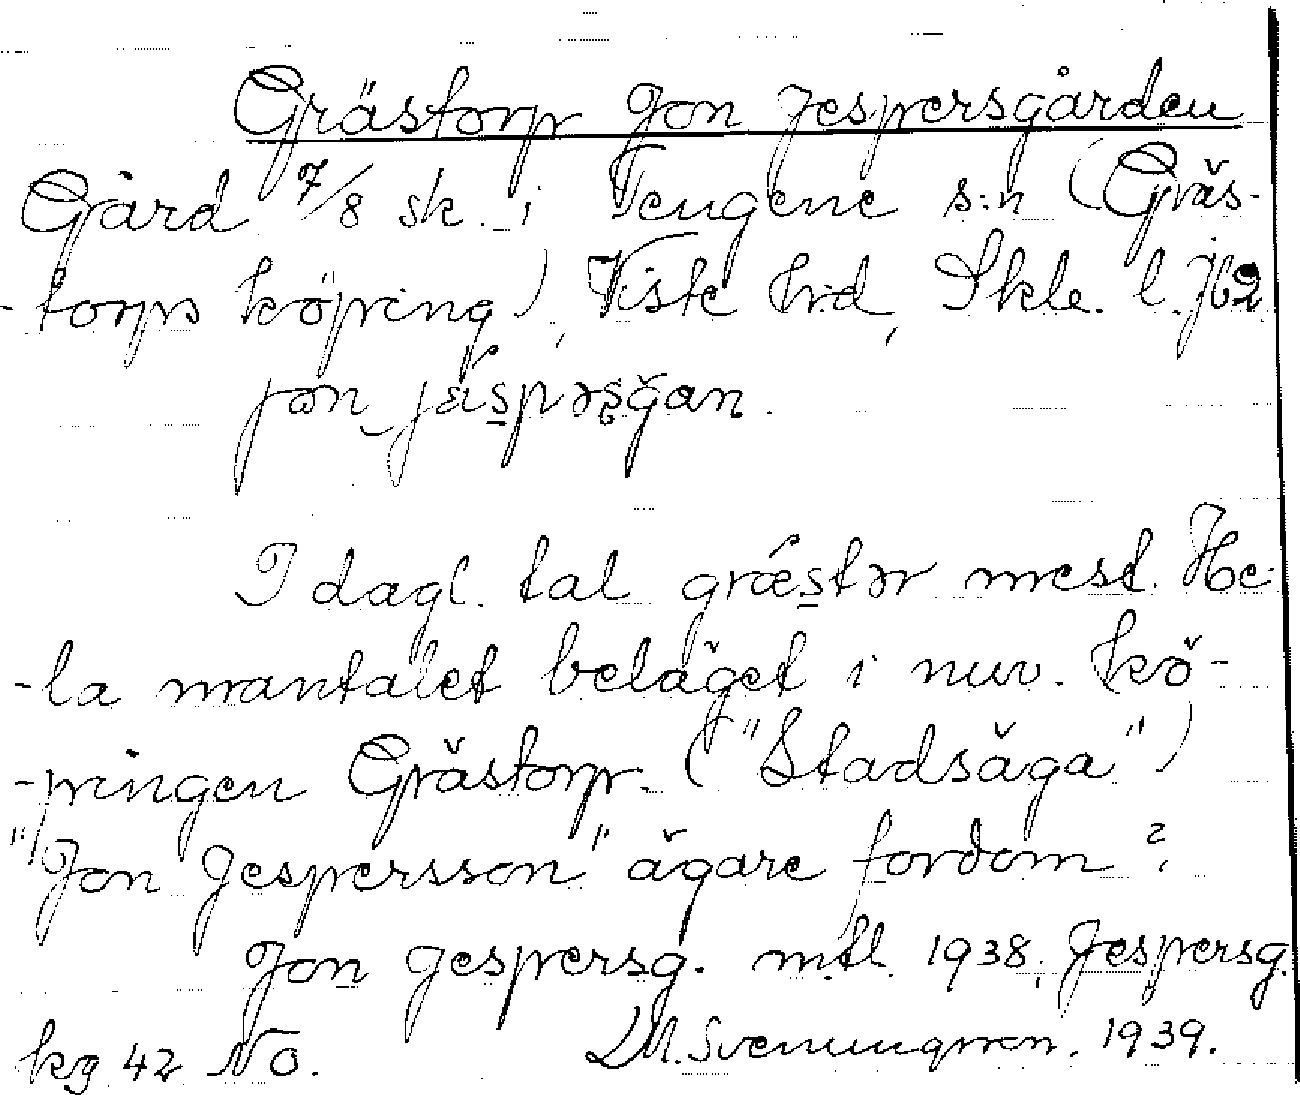 Grästorp Jon Jespersgården
Gård 7/8 sk. i Tengene s:n (Gräs-
-torps köping), Viste hd, Skbl. l. J62
jon jǽspəsgan.
I dagl. tal grǽstər mest. He-
-la mantalet beläget i nuv. kö-
-pingen Grästorp. ("Stadsäga")
"Jon Jespersson" ägare fordom?
Jon Jespersg. mtl. 1938, Jespersg.
kg 42 NO. 1939.